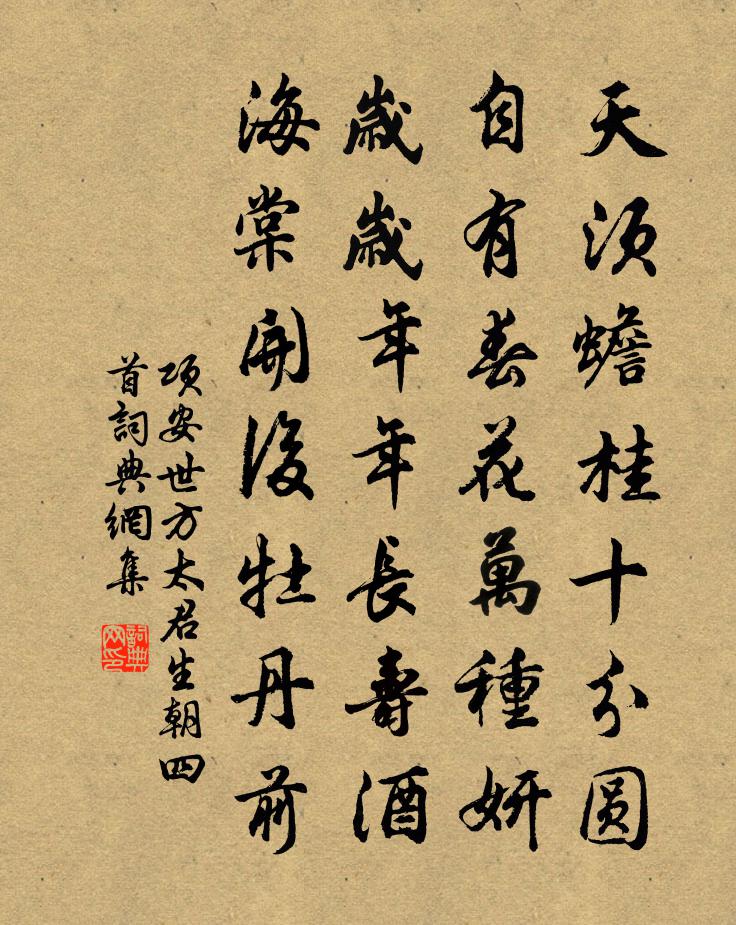 天须蟾桂十分圆
自有春花萬種妍
歲歲年年長壽酒
海棠開後牡丹前
項安世方太君生朝四
首詞典網集
詞典
网印